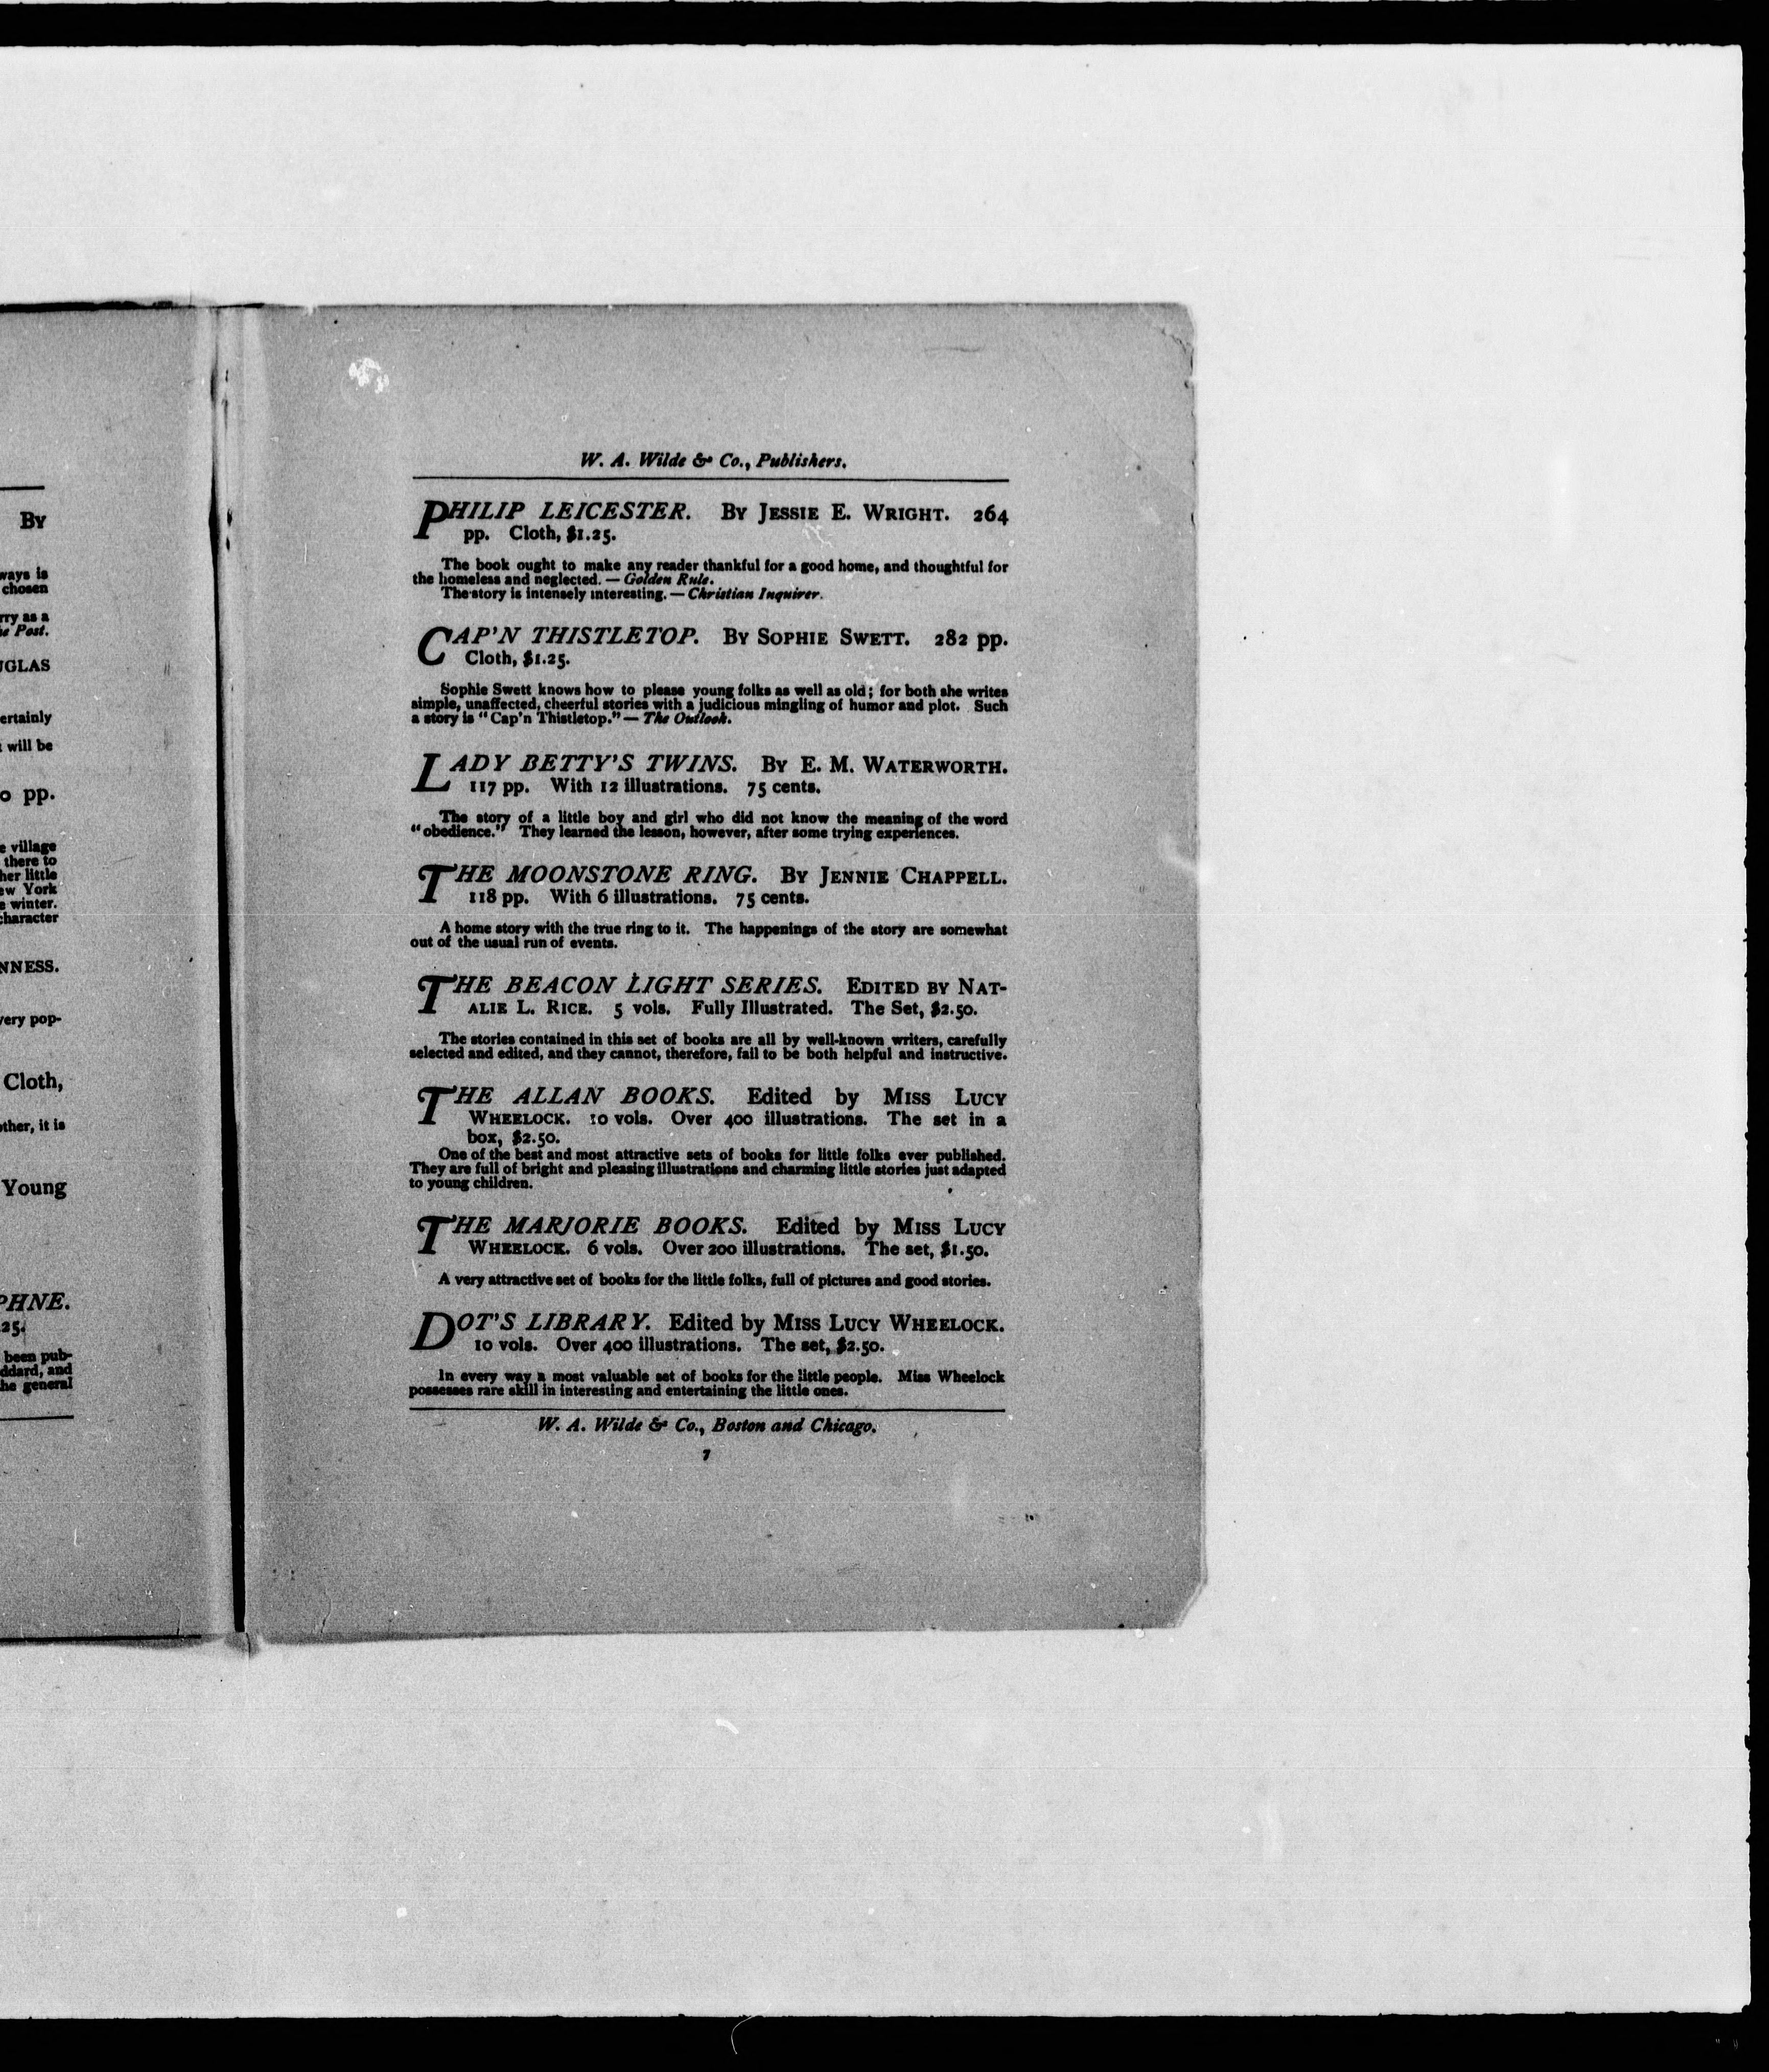 By
ways is
chosen
rry as a
he Post.
UGLAS
ertainly
t will be
o pp.
e village
there to
her little
ew York
e winter.
character
NNESS.
very pop-
Cloth,
other, it is
Young
PHNE.
.25.
been pub-
ddard, and
he general
W. A. Wilde & Co., Publishers.
PHILIP LEICESTER. By Jessie E. Wright. 264
pp. Cloth, $1.25.
The book ought to make any reader thankful for a good home, and thoughtful for
the homeless and neglected. — Golden Rule.
The story is intensely interesting. — Christian Inquirer.
CAP'N THISTLETOP. By Sophie Swett. 282 pp.
Cloth, $1.25.
Sophie Swett knows how to please young folks as well as old; for both she writes
simple, unaffected, cheerful stories with a judicious mingling of humor and plot. Such
a story is "Cap'n Thistletop." — The Outlook.
LADY BETTY'S TWINS. By E. M. Waterworth.
117 pp. With 12 illustrations. 75 cents.
The story of a little boy and girl who did not know the meaning of the word
"obedience." They learned the lesson, however, after some trying experiences.
THE MOONSTONE RING. By Jennie Chappell.
118 pp. With 6 illustrations. 75 cents.
A home story with the true ring to it. The happenings of the story are somewhat
out of the usual run of events.
THE BEACON LIGHT SERIES. Edited by Nat-
alie L. Rice. 5 vols. Fully Illustrated. The Set, $2.50.
The stories contained in this set of books are all by well-known writers, carefully
selected and edited, and they cannot, therefore, fail to be both helpful and instructive.
THE ALLAN BOOKS. Edited by Miss Lucy
Wheelock. 10 vols. Over 400 illustrations. The set in a
box, $2.50.
One of the best and most attractive sets of books for little folks ever published.
They are full of bright and pleasing illustrations and charming little stories just adapted
to young children.
THE MARJORIE BOOKS. Edited by Miss Lucy
Wheelock. 6 vols. Over 200 illustrations. The set, $1.50.
A very attractive set of books for the little folks, full of pictures and good stories.
DOT'S LIBRARY. Edited by Miss Lucy Wheelock.
10 vols. Over 400 illustrations. The set, $2.50.
In every way a most valuable set of books for the little people. Miss Wheelock
possesses rare skill in interesting and entertaining the little ones.
W. A. Wilde & Co., Boston and Chicago.
7